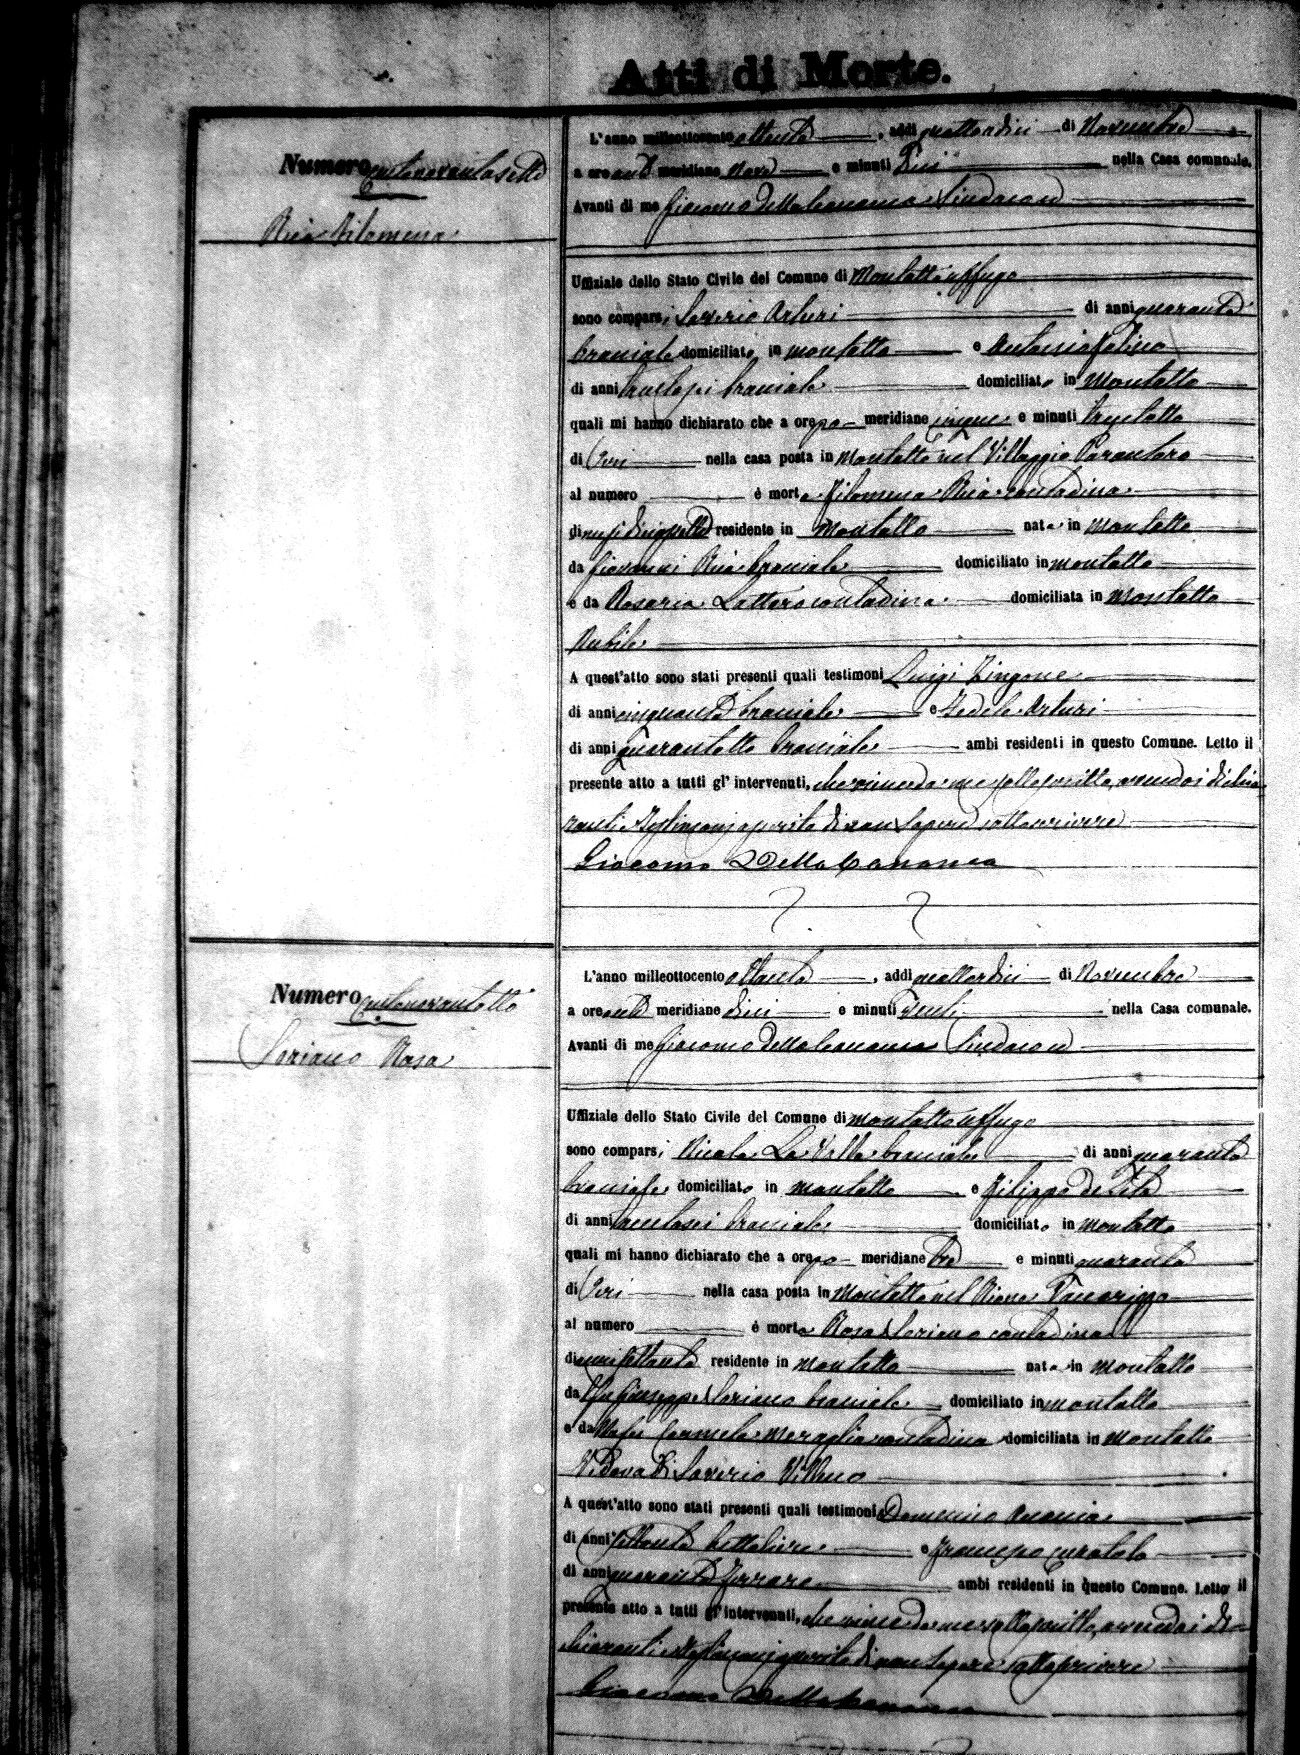 Atti di Morte.
Numero centonovantasette
Ria Filomena
L'anno milleottocento ottanta, addì quattordici di Novembre
a ore anti meridiane nove e minuti dieci nella Casa comunale.
Avanti di me Giacomo Della Cananea Sindaco ed
Uffiziale dello Stato Civile del Comune di Montalto Uffugo
sono comparsi Saverio Arturi di anni quaranta
bracciale domiciliato in Montalto e Antonio
di anni trentasei bracciale domiciliato in Montalto
quali mi hanno dichiarato che a ore po meridiane cinque e minuti trentotto
di Ieri nella casa posta in Montalto nel Villaggio Parantoro
al numero è morta Filomena Ria contadina
di mesi diciassette residente in Montalto nata in Montalto
da Giovanni Ria bracciale domiciliato in Montalto
e da Rosaria Lattaro contadina domiciliata in Montalto
Nubile
A quest'atto sono stati presenti quali testimoni Luigi Zingone
di anni cinquanta bracciale e Fedele Arturi
di anni quarantotto bracciale ambi residenti in questo Comune. Letto il
presente atto a tutti gl'intervenuti, che viene da me sottoscritto, avendo i dichia
ranti e testimonj asserito di non sapere sottoscrivere
Giacomo Della Cananea
Numero centonovantotto
Soriano Rosa
L'anno milleottocento ottanta, addì quattordici di Novembre
a ore anti meridiane dieci e minuti venti nella Casa comunale.
Avanti di me Giacomo Della Cananea Sindaco ed
Uffiziale dello Stato Civile del Comune di Montalto Uffugo
sono comparsi Nicola La Valle bracciale di anni quaranta
bracciale domiciliato in Montalto e Filippo de
di anni trentasei bracciale domiciliato in Montalto
quali mi hanno dichiarato che a ore po meridiane tre e minuti quaranta
di Ieri nella casa posta in Montalto nel Rione Vaccarizzo
al numero è morta Rosa Soriano contadina
di anni settanta residente in Montalto nata in Montalto
da fu Giuseppe Soriano bracciale domiciliato in Montalto
e da fu Carmela contadina domiciliata in Montalto
Vedova di Saverio Villano
A quest'atto sono stati presenti quali testimoni Domenico Anania
di anni settanta bottaliere e Francesco Curatolo
di anni quaranta ferraro ambi residenti in questo Comune. Letto il
presente atto a tutti gl'intervenuti, che viene da me sottoscritto, avendo i di=
chiaranti e testimonj asserito di non sapere sottoscrivere
Giacomo Della Cananea